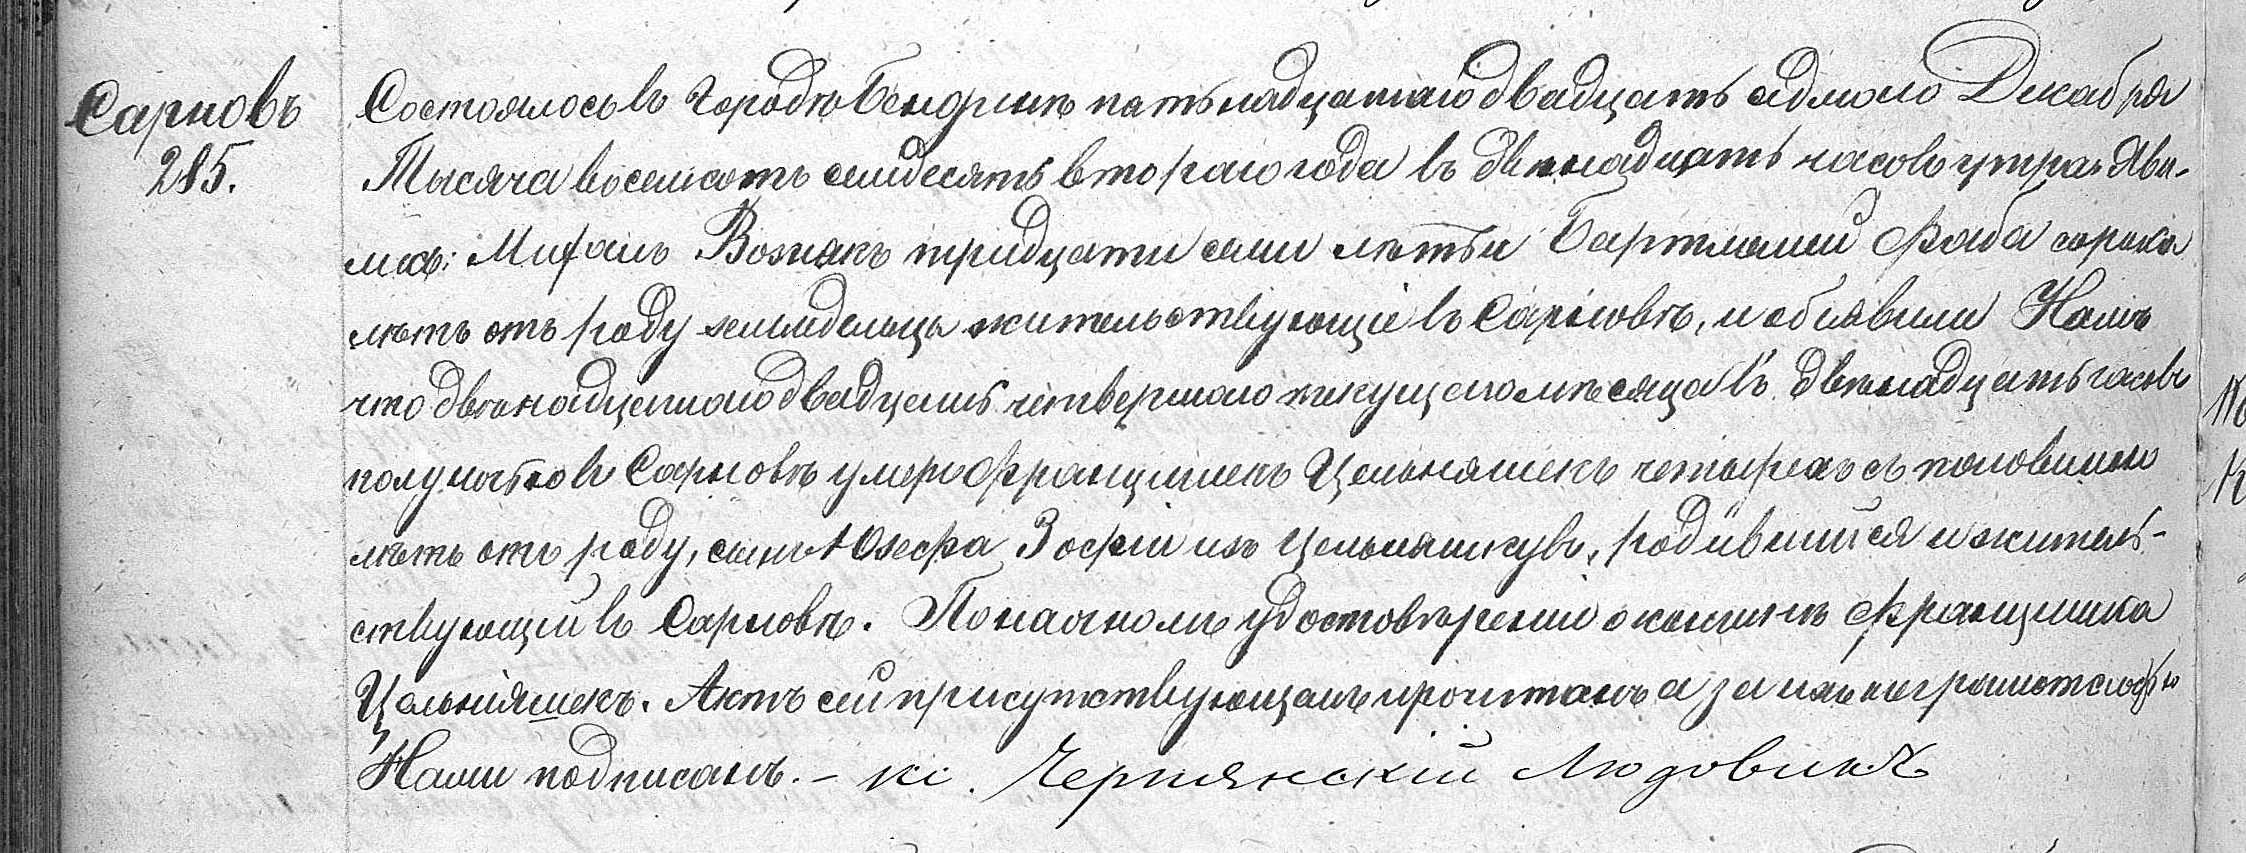 Сарновъ
285.
Состоялось въ городѣ Бендинѣ пятьнадцатаго двадцать седмого Декабря
Тысяча восемсотъ семдесятъ втораго года въ двѣнадцать часовъ утра. Яви-
лись: Михалъ Вознякъ тридцати семи лѣтъ и Бартломей Фраба сорока
лѣтъ отъ роду земледельцы жительствующіе въ Сарновѣ, и обіявили Намъ
что двѣнадцатаго двадцать четвертаго текущаго мѣсяца въ двѣнадцать часовъ
полуночью въ Сарновѣ умеръ Францишекъ Цельняшекъ четырехъ съ половиною
лѣтъ отъ роду, сынъ Юзефа Зофіи изъ Цельняшкувъ, родившийся и житель-
ствующий въ Сарновѣ. По наочномъ удостовѣреніи о кончинѣ Францишка
Цельніяшекъ. Актъ сей присутствующимъ прочитанъ а за ихъ неграмотностью
Нами подписанъ. – Кс. Чернянскій Людовикъ